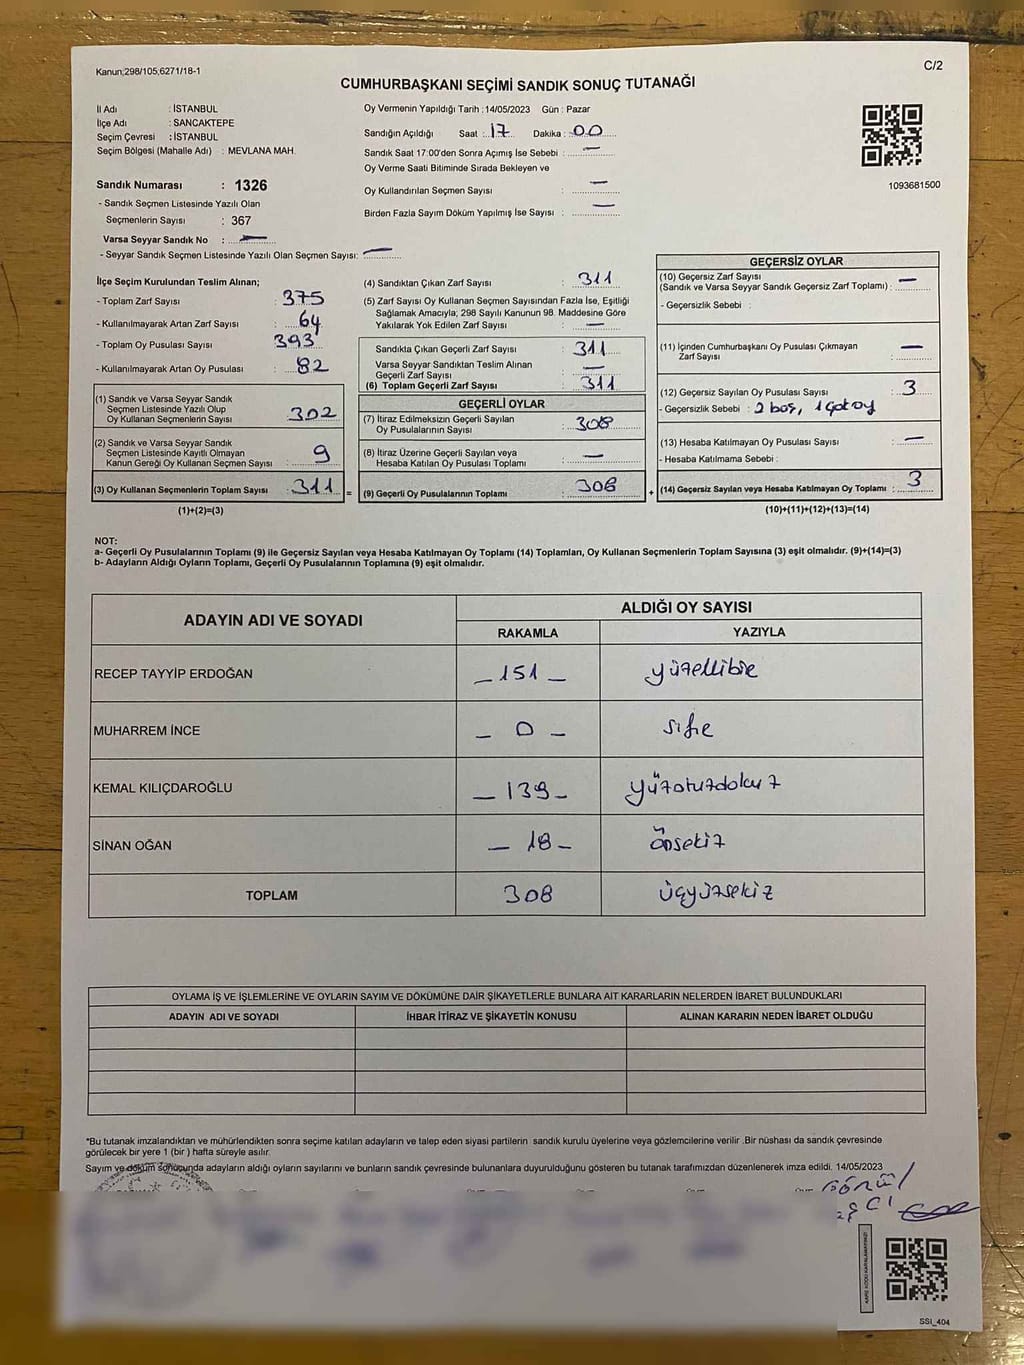 Kanun;298/105;6271/18-1
C/2
CUMHURBAŞKANI SEÇİMİ SANDIK SONUÇ TUTANAĞI
İl Adı : İSTANBUL
İlçe Adı : SANCAKTEPE
Seçim Çevresi : İSTANBUL
Seçim Bölgesi (Mahalle Adı) : MEVLANA MAH.
Oy Vermenin Yapıldığı Tarih :14/05/2023 Gün : Pazar
Sandığın Açıldığı Saat : 17 Dakika : 00
Sandık Saat 17:00'den Sonra Açımış İse Sebebi : —
Oy Verme Saati Bitiminde Sırada Bekleyen ve
Oy Kullandırılan Seçmen Sayısı : —
Birden Fazla Sayım Döküm Yapılmış İse Sayısı : —
1093681500
Sandık Numarası : 1326
- Sandık Seçmen Listesinde Yazılı Olan
Seçmenlerin Sayısı : 367
Varsa Seyyar Sandık No : —
- Seyyar Sandık Seçmen Listesinde Yazılı Olan Seçmen Sayısı: —
İlçe Seçim Kurulundan Teslim Alınan;
- Toplam Zarf Sayısı : 375
- Kullanılmayarak Artan Zarf Sayısı : 64
- Toplam Oy Pusulası Sayısı : 393
- Kullanılmayarak Artan Oy Pusulası : 82
(1) Sandık ve Varsa Seyyar Sandık
Seçmen Listesinde Yazılı Olup
Oy Kullanan Seçmenlerin Sayısı : 302
(2) Sandık ve Varsa Seyyar Sandık
Seçmen Listesinde Kayıtlı Olmayan
Kanun Gereği Oy Kullanan Seçmen Sayısı : 9
(3) Oy Kullanan Seçmenlerin Toplam Sayısı : 311 =
(1)+(2)=(3)
(4) Sandıktan Çıkan Zarf Sayısı : 311
(5) Zarf Sayısı Oy Kullanan Seçmen Sayısından Fazla İse, Eşitliği
Sağlamak Amacıyla; 298 Sayılı Kanunun 98. Maddesine Göre
Yakılarak Yok Edilen Zarf Sayısı : —
Sandıkta Çıkan Geçerli Zarf Sayısı : 311
Varsa Seyyar Sandıktan Teslim Alınan
Geçerli Zarf Sayısı : —
(6) Toplam Geçerli Zarf Sayısı : 311
GEÇERLİ OYLAR
(7) İtiraz Edilmeksizin Geçerli Sayılan
Oy Pusulalarının Sayısı : 308
(8) İtiraz Üzerine Geçerli Sayılan veya
Hesaba Katılan Oy Pusulası Toplamı : —
(9) Geçerli Oy Pusulalarının Toplamı : 308 +
GEÇERSİZ OYLAR
(10) Geçersiz Zarf Sayısı
(Sandık ve Varsa Seyyar Sandık Geçersiz Zarf Toplamı) : —
- Geçersizlik Sebebi :
(11) İçinden Cumhurbaşkanı Oy Pusulası Çıkmayan
Zarf Sayısı : —
(12) Geçersiz Sayılan Oy Pusulası Sayısı : 3
- Geçersizlik Sebebi : 2 boş, 1 çot oy
(13) Hesaba Katılmayan Oy Pusulası Sayısı : —
- Hesaba Katılmama Sebebi :
(14) Geçersiz Sayılan veya Hesaba Katılmayan Oy Toplamı : 3
(10)+(11)+(12)+(13)=(14)
NOT:
a- Geçerli Oy Pusulalarının Toplamı (9) ile Geçersiz Sayılan veya Hesaba Katılmayan Oy Toplamı (14) Toplamları, Oy Kullanan Seçmenlerin Toplam Sayısına (3) eşit olmalıdır. (9)+(14)=(3)
b- Adayların Aldığı Oyların Toplamı, Geçerli Oy Pusulalarının Toplamına (9) eşit olmalıdır.
ADAYIN ADI VE SOYADI
ALDIĞI OY SAYISI
RAKAMLA YAZIYLA
RECEP TAYYİP ERDOĞAN — 151 — yüzellibir
MUHARREM İNCE — 0 — sıfır
KEMAL KILIÇDAROĞLU — 139 — yüzotuzdokuz
SİNAN OĞAN — 18 — onsekiz
TOPLAM 308 üçyüzsekiz
OYLAMA İŞ VE İŞLEMLERİNE VE OYLARIN SAYIM VE DÖKÜMÜNE DAİR ŞİKAYETLERLE BUNLARA AİT KARARLARIN NELERDEN İBARET BULUNDUKLARI
ADAYIN ADI VE SOYADI İHBAR İTİRAZ VE ŞİKAYETİN KONUSU ALINAN KARARIN NEDEN İBARET OLDUĞU
*Bu tutanak imzalandıktan ve mühürlendikten sonra seçime katılan adayların ve talep eden siyasi partilerin sandık kurulu üyelerine veya gözlemcilerine verilir .Bir nüshası da sandık çevresinde
görülecek bir yere 1 (bir ) hafta süreyle asılır.
Sayım ve döküm sonucunda adayların aldığı oyların sayılarını ve bunların sandık çevresinde bulunanlara duyurulduğunu gösteren bu tutanak tarafımızdan düzenlenerek imza edildi. 14/05/2023
SSI_404